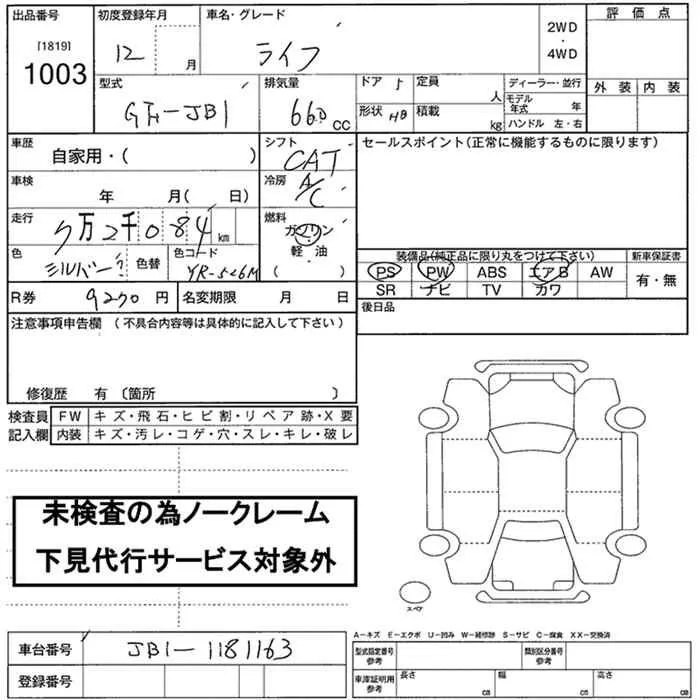 出品番号
[1819]
1003
初度登録年月
12 月
車名・グレード
ライフ
2WD
・
4WD
評価点
型式
GF-JB1
排気量
660 cc
ドア 5
定員 人
形状 HB
積載 kg
ディーラー・並行
モデル年式 年
ハンドル 左・右
外装 内装
車歴
自家用・( )
シフト
CAT
セールスポイント(正常に機能するものに限ります)
車検
年 月( 日)
冷房
A/C
走行
万2千084 km
燃料
ガソリン
軽・油
( )
色
シルバー
色替
色コード
装備品(純正品に限り丸をつけて下さい)
新車保証書
PS PW ABS エアB AW
SR ナビ TV カワ
有・無
R券 9270 円
名変期限 月 日
後日品
注意事項申告欄 (不具合内容等は具体的に記入して下さい)
修復歴 有 〔箇所 〕
検査員
記入欄
FW キズ・飛石・ヒビ割・リペア跡・X要
内装 キズ・汚レ・コゲ・穴・スレ・キレ・破レ
未検査の為ノークレーム
下見代行サービス対象外
スペア
A-キズ E-エクボ U-凹み W-補修跡 S-サビ C-腐食 XX-交換済
車台番号 JB1-1181163
登録番号
型式指定番号
参考
類別区分番号
参考
車庫証明用
参考
長さ cm
幅 cm
高さ cm